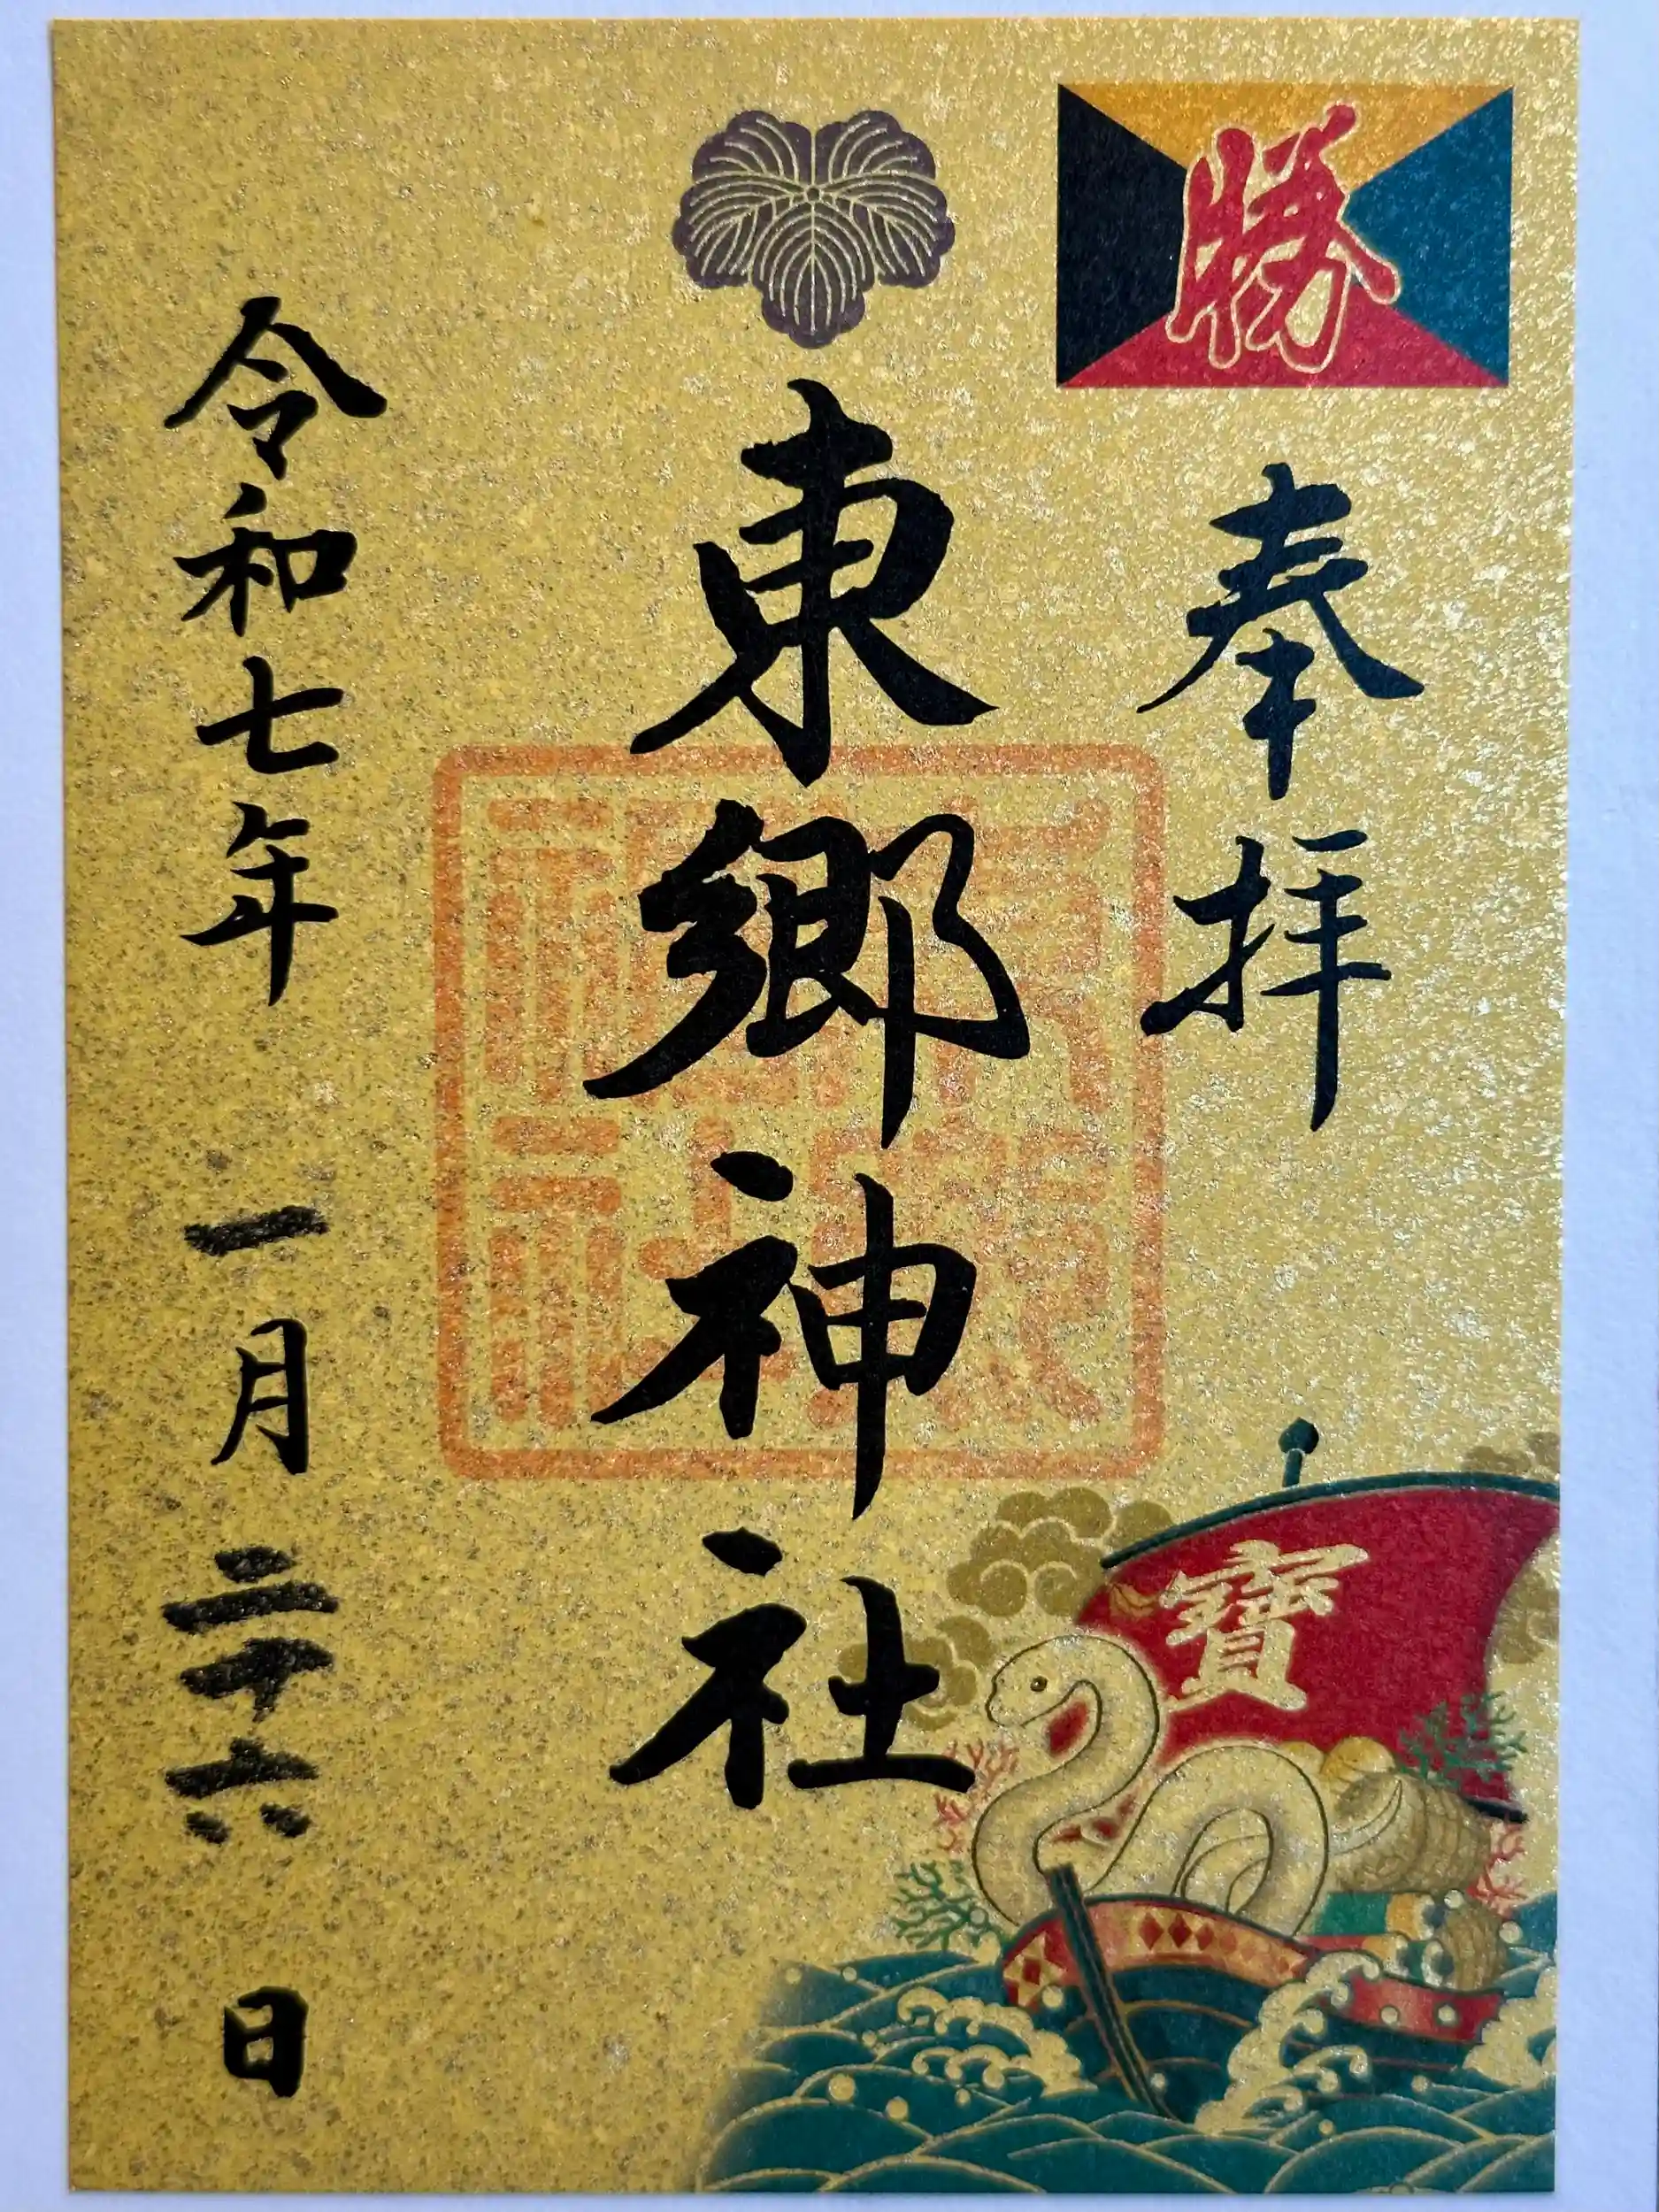 勝
奉拝
東郷神社
令和七年 一月 二十六日
寶